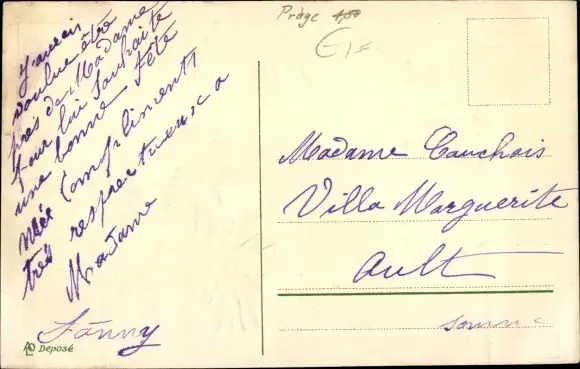 Präge 4,50
G1=
J'aurais
voulue être
près de Madame
pour lui souhaité
une bonne fête
Mes compliments
très respectueux a
Madame
Fanny
Deposé
Madame Cauchois
Villa Marguerite
Ault
Somme